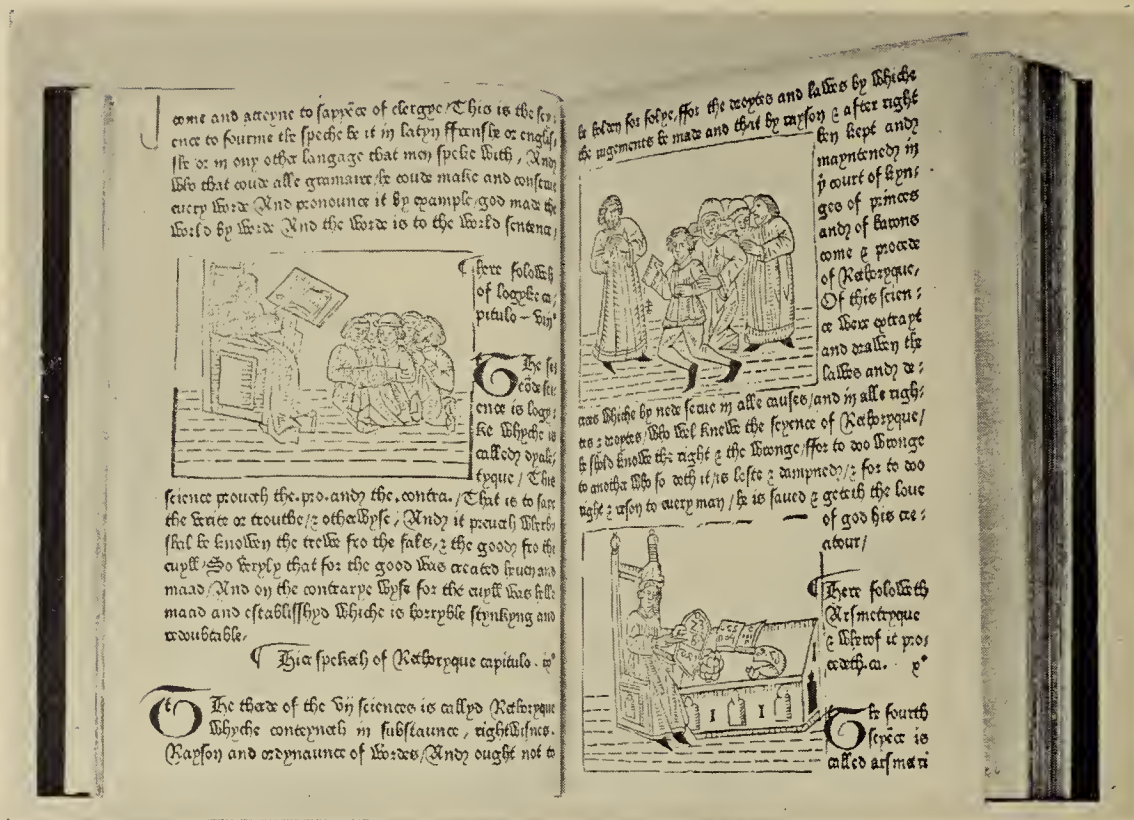 come and atteyne to sapyēce of clergye/ This is the scy⸗
ence to fourme the speche be it in latyn ffrensshe or englis⸗
she or in ony other langage that men speke with, And
who that coude alle gramaire/ he coude make and construe
euery worde And pronounce it by example/ god made the
world by worde And the worde is to the world sentence/
¶ here foloweth
of logyke ca⸗
pitulo – viijº
The se⸗
cōde sci⸗
ence is logy⸗
ke whyche is
called dyale⸗
tyque/ This
science proueth the .pro. and the .contra./ That is to saye
the verite or trouthe/ & otherwyse, And it preueth wherby
shal be knowen the trewe fro the fals, & the good fro the
euyll/ So veryly that for the good was created heuen and
maad/ And on the contrarye wyse for the euyll was helle
maad and establisshyd whiche is horryble stynkyng and
redoubtable,
¶ Hier speketh of Rethoryque capitulo . ixº
The therde of the vij sciences is callyd Rethoryque
whyche conteyneth in substaunce, rightwisnes.
Rayson and ordynaunce of wordes/ And ought not to
be holden for folye, ffor the droytes and lawes by whiche
the iugements be made and that by rayson & after right
ben kept and
mayntened in
yᵉ court of kyn⸗
ges of princes
and of barons
come & procede
of Rethoryque,
Of this scien⸗
ce were extrayt
and drawen the
lawes and de⸗
crees whiche by nede serue in alle causes/ and in alle righ⸗
tes & droytes/ who wel knewe the scyence of Rethoryque/
he shold knowe the right & the wronge/ ffor to doo wronge
to another who so doth it/ is loste & dampned/ & for to doo
right & reson to euery man/ he is saued & geteth the loue
of god his cre⸗
atour/
¶ Here foloweth
Arsmetryque
& wherof it pro⸗
cedeth. ca. xº
I I
The fourth
scyēce is
called arsmetri